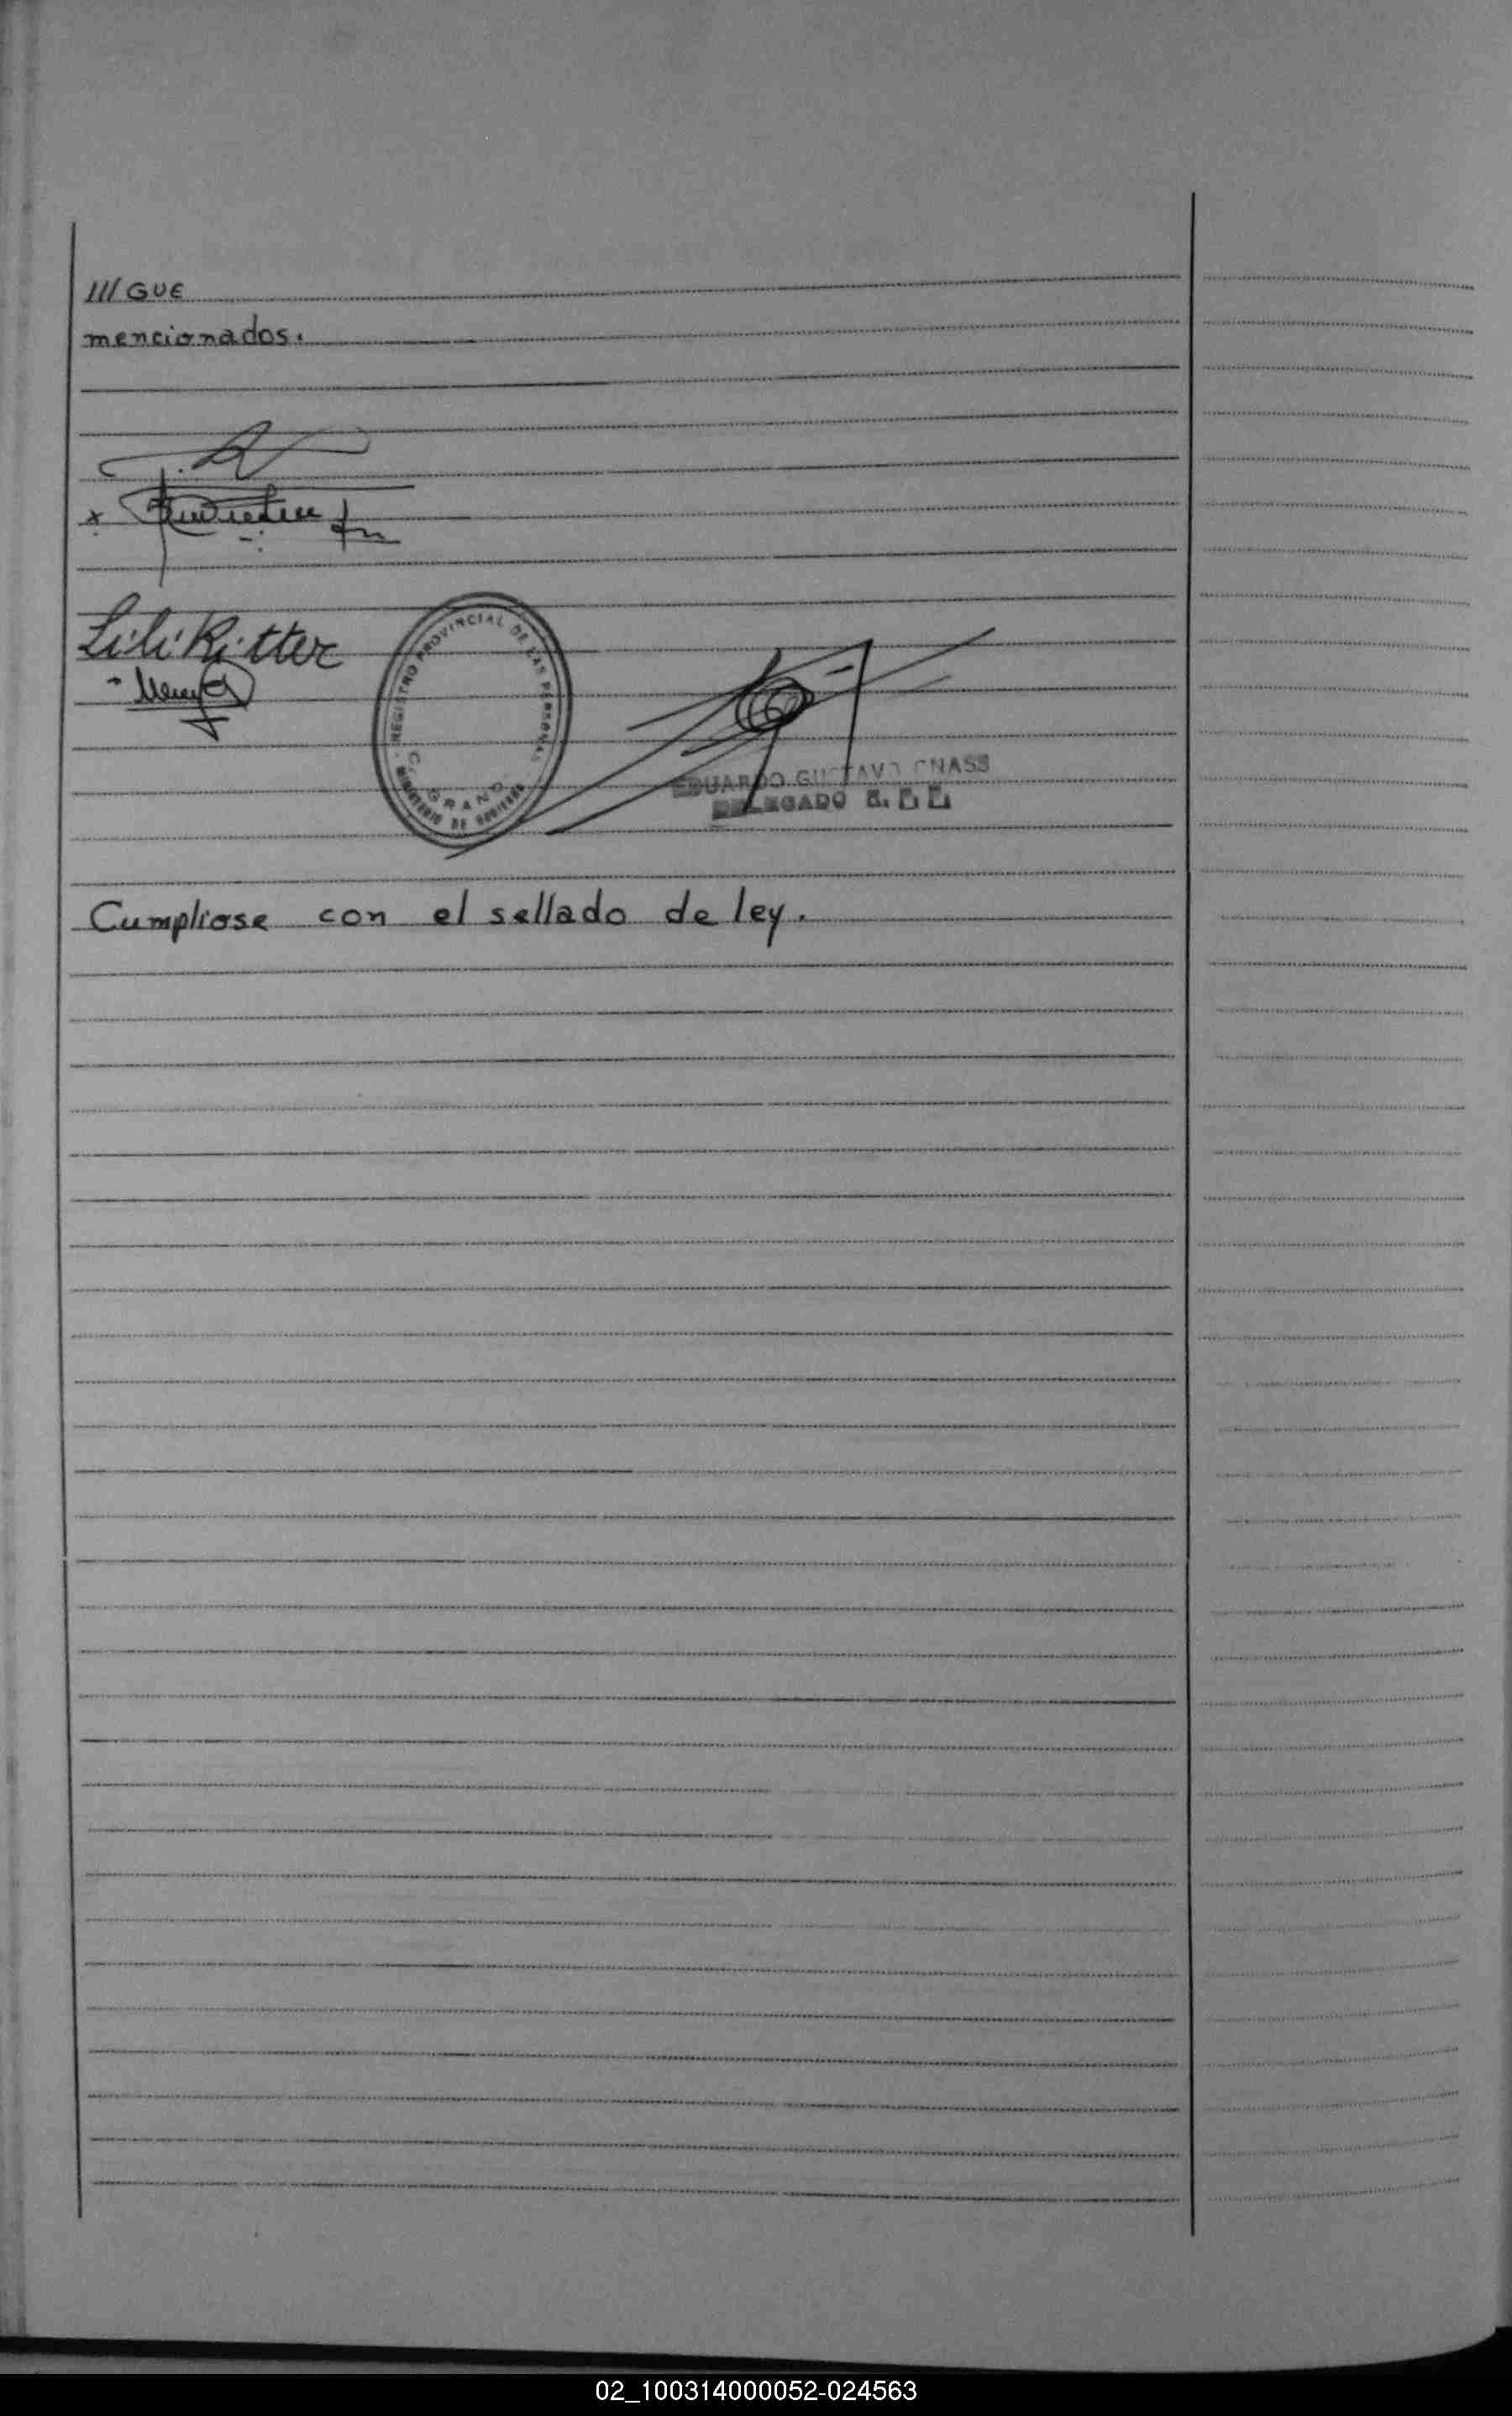 ///GUE
mencionados.
Lili Ritter
REGISTRO PROVINCIAL DE LAS PERSONAS
C. GRAND
MINISTERIO DE GOBIERNO
EDUARDO GUSTAVO
DELEGADO
Cumpliose con el sellado de ley.
02_100314000052-024563